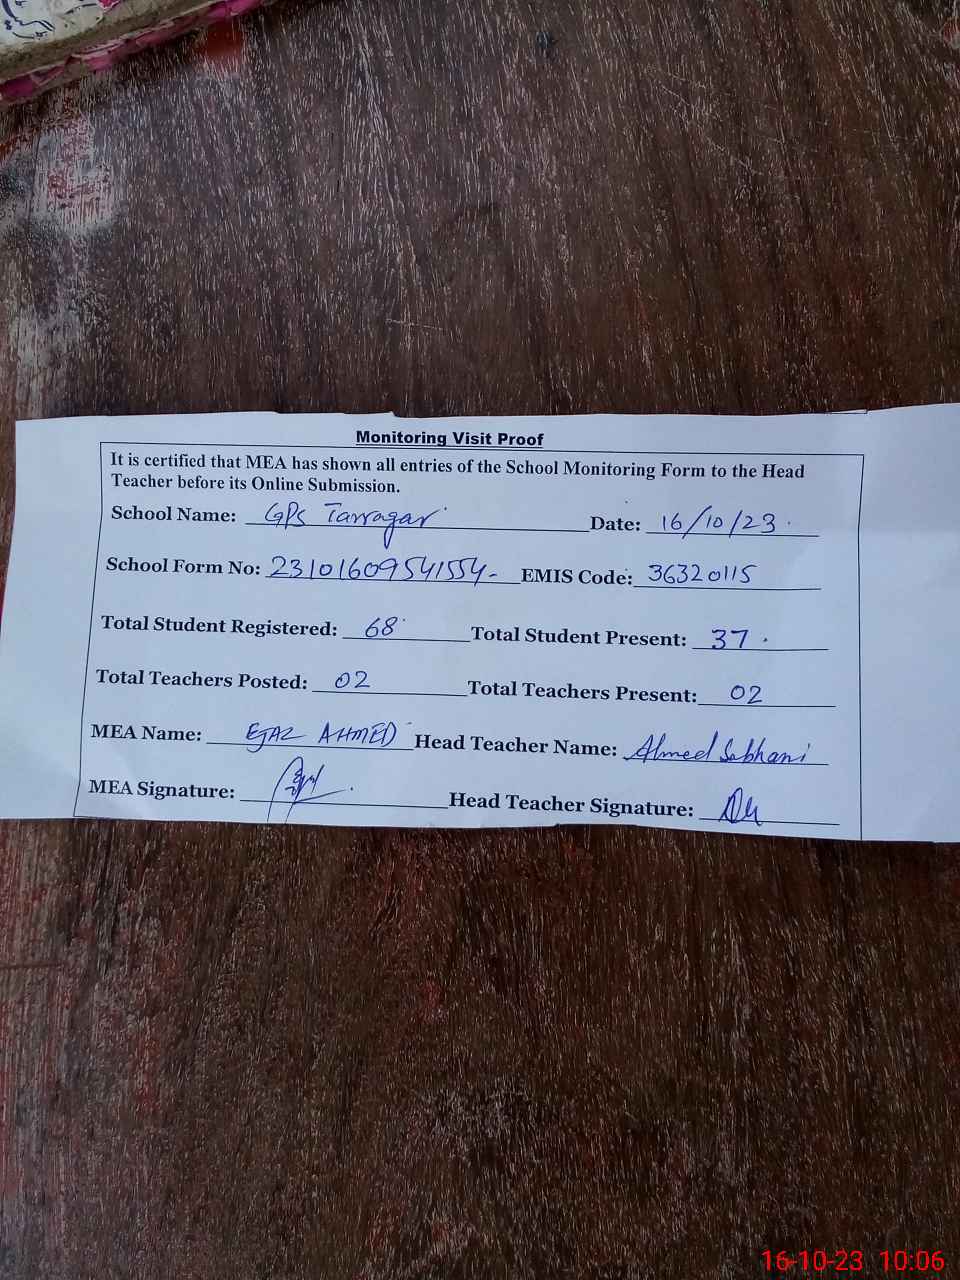 Monitoring Visit Proof
It is certified that MEA has shown all entries of the School Monitoring Form to the Head
Teacher before its Online Submission.
School Name: GPS Tarragar Date: 16/10/23
School Form No: 23101609541554 EMIS Code: 36320115
Total Student Registered: 68 Total Student Present: 37
Total Teachers Posted: 02 Total Teachers Present: 02
MEA Name: EJAZ AHMED Head Teacher Name: Ahmed Sabhani
MEA Signature: Head Teacher Signature:
16-10-23 10:06